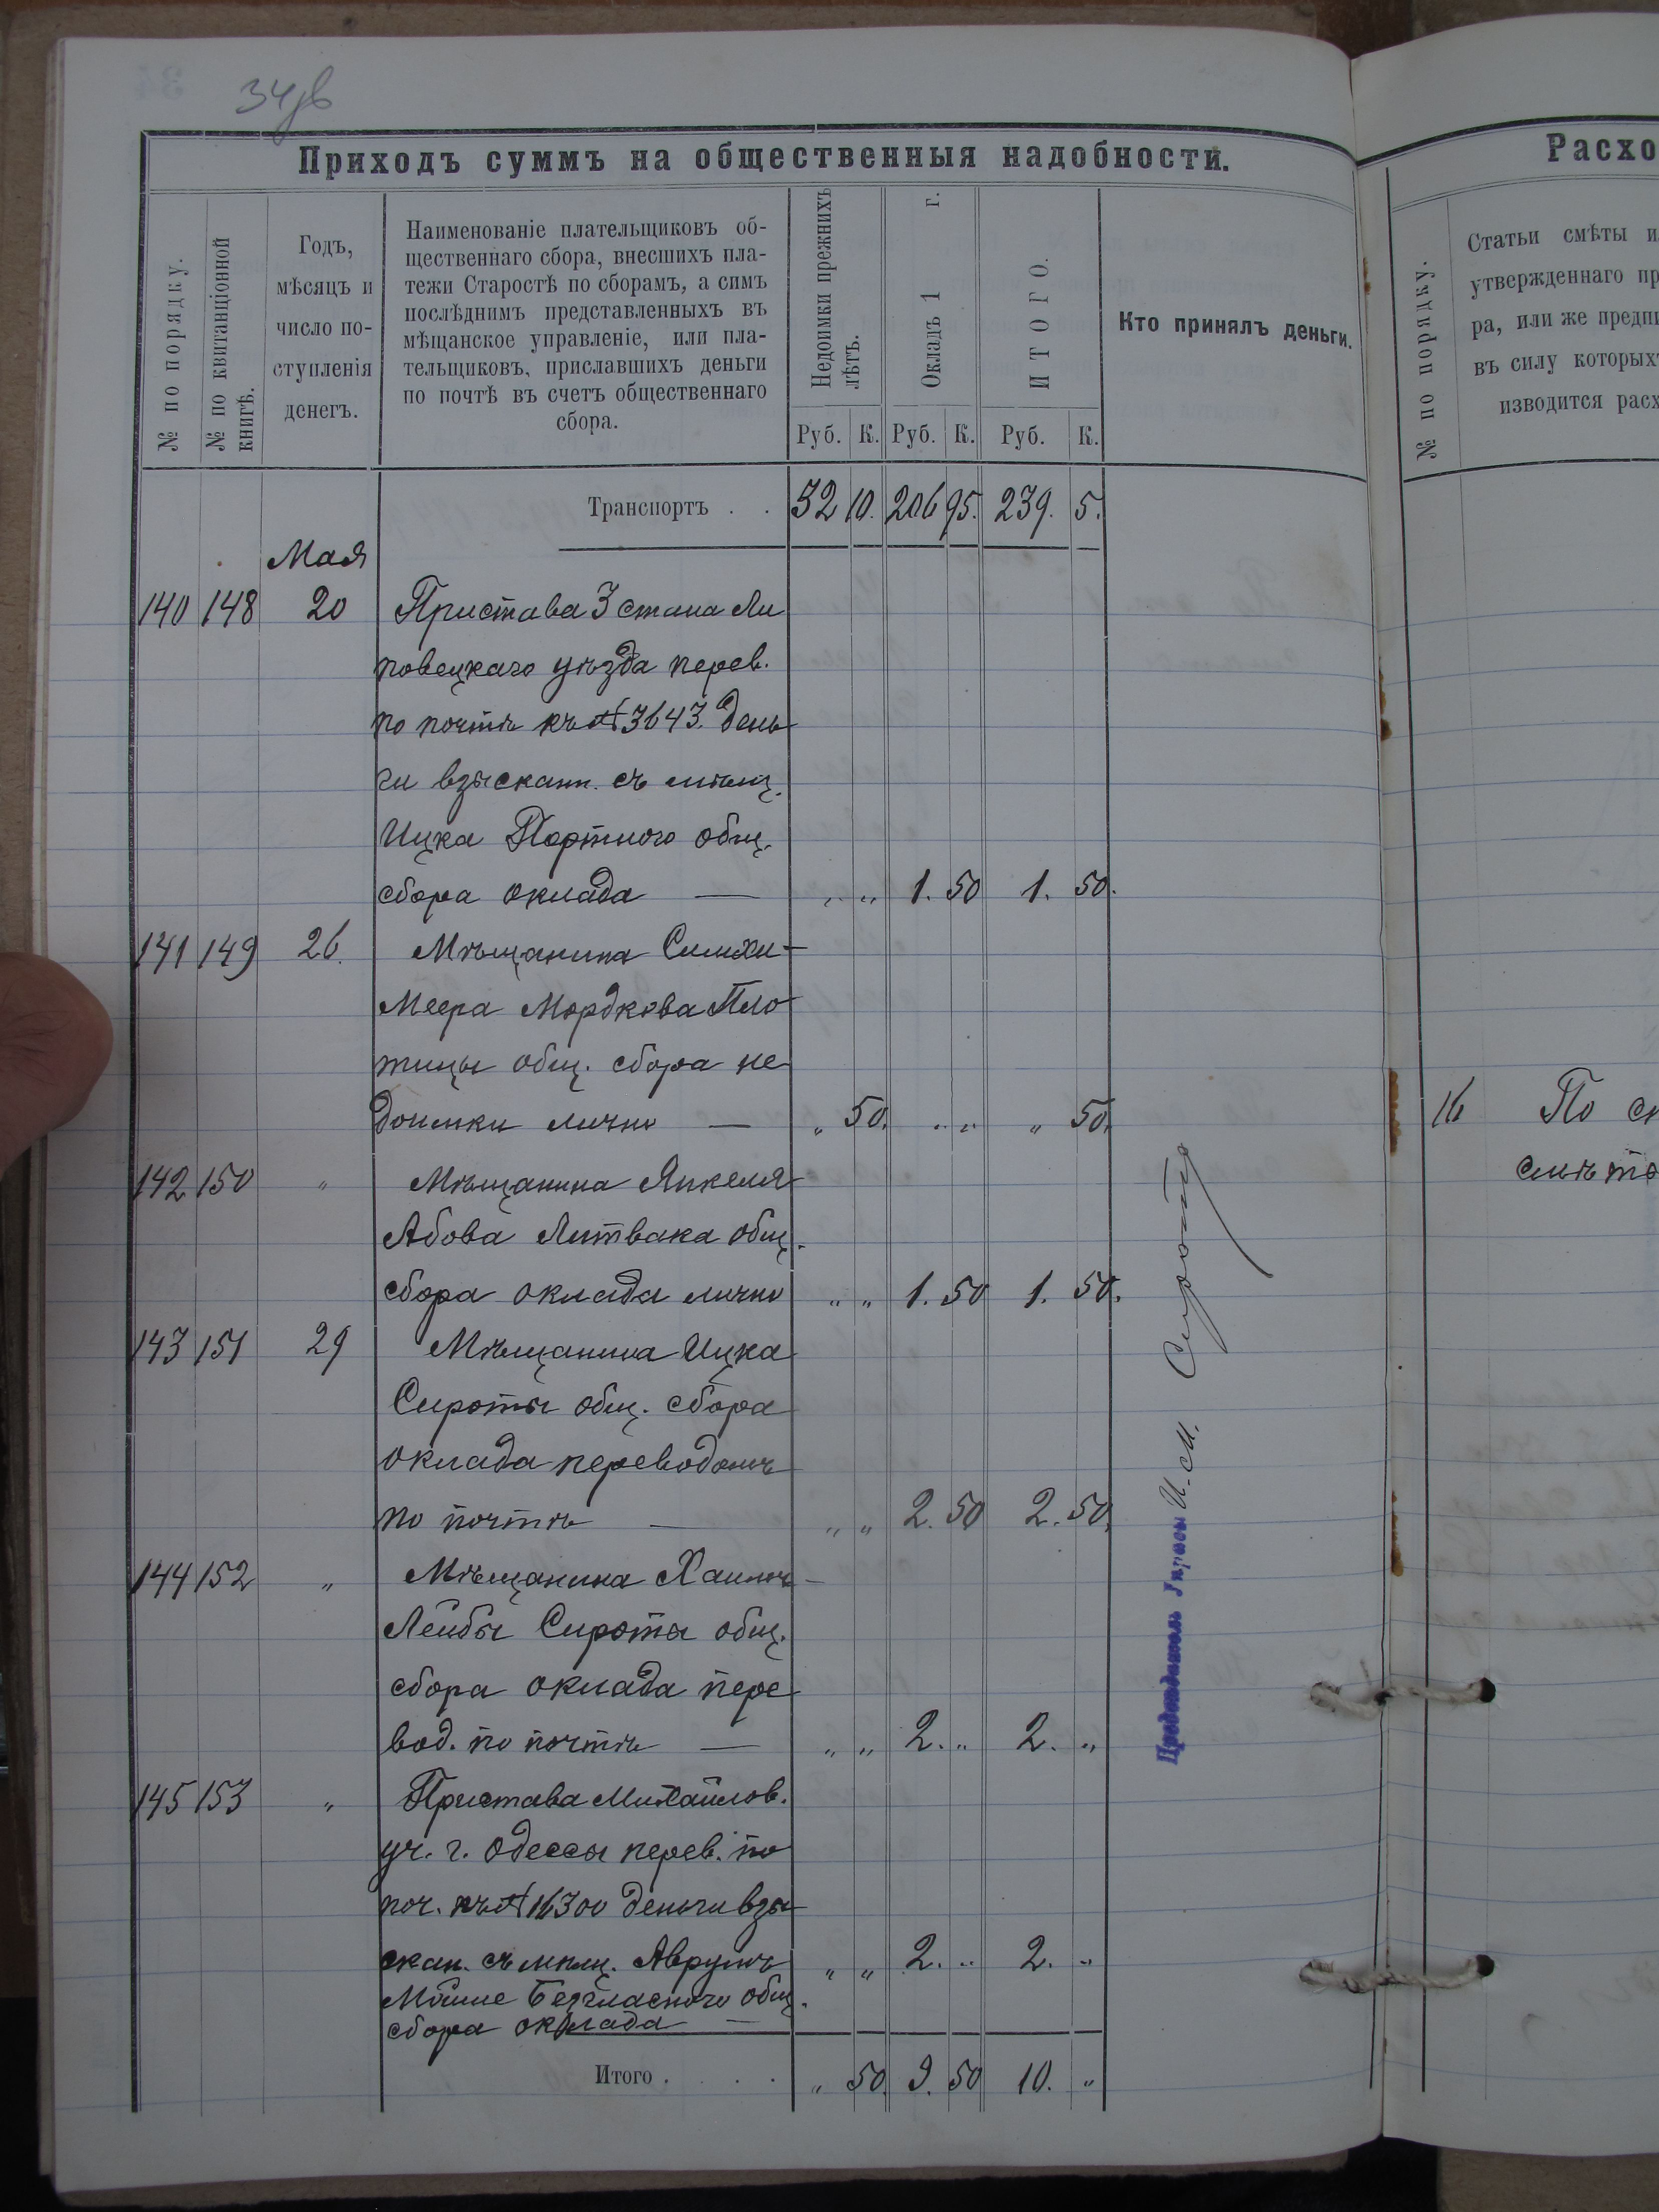 34 зв
Приходъ суммъ на общественныя надобности.
№ по порядку.
№ по квитанціонной
книгѣ.
Годъ,
мѣсяцъ и
число по-
ступленія
денегъ.
Наименованіе плательщиковъ об-
щественнаго сбора, внесшихъ пла-
тежи Старостѣ по сборамъ, а симъ
послѣднимъ представленныхъ въ
мѣщанское управленіе, или пла-
тельщиковъ, приславшихъ деньги
по почтѣ въ счетъ общественнаго
сбора.
Недоимки прежнихъ
лѣтъ.
Окладъ 1 г.
ИТОГО.
Кто принялъ деньги.
Руб. К. Руб. К. Руб. К.
Транспортъ . . 32 10. 206 95. 239. 5.
Мая
140 148 20 Пристава 3 стана Ли
повецкаго уѣзда перев.
по почтѣ къ № 3643. день
ги взыскан. съ мѣщ.
Ицка Портного общ.
сбора оклада — „ „ 1. 50 1. 50.
141 149 26. Мѣщанина Симхи-
Меера Мордкова Пло
тицы общ. сбора не
доимки лично — „ 50. „ „ „ 50.
142 150 „ Мѣщанина Янкеля
Абова Литвака общ.
сбора оклада лично „ „ 1. 50 1. 50.
143 151 29 Мѣщанина Ицка
Сироты общ. сбора
оклада переводомъ
по почтѣ — „ „ 2. 50 2. 50.
144 152 „ Мѣщанина Хаимъ-
Лейбы Сироты общ.
сбора оклада пере
вод. по почтѣ — „ „ 2. „ 2. „
145 153 „ Пристава Михайлов.
уч. г. Одессы перев. по
поч. къ № 16300 деньги взы
скан. съ мѣщ. Аврумъ „ „ 2. „ 2. „
Мойше Безгласного общ.
сбора оклада —
Итого . . . . „ 50. 9. 50 10. „
Предсѣдатель Управы И. М. Сирота
Расхо
№ по порядку.
Статьи смѣты и
утвержденнаго пр
ра, или же предпи
въ силу которыхъ
изводится расх
16 По
смѣтѣ